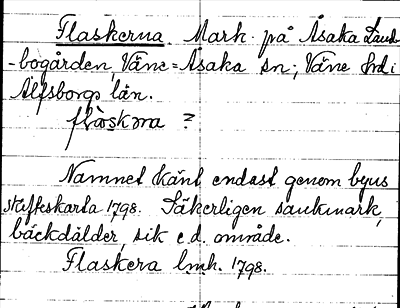 Flaskerna. Mark på Åsaka Land
-bogården, Väne=Åsaka sn; Väne hd i
Älfsborgs län.
flàskɔrna ?
Namnet känt endast genom byns
skifteskarta 1798. Säkerligen sankmark,
bäckdälder, sik e.d. område.
Flaskera lmh. 1798.